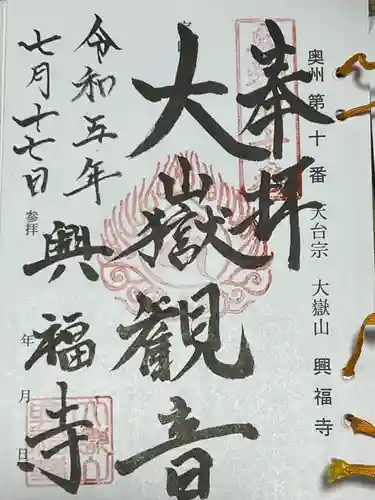 奥州 第十番 天台宗 大嶽山 興福寺
奉拝
大嶽観音
令和五年
七月十七日
参拝 年 月 日
興福寺